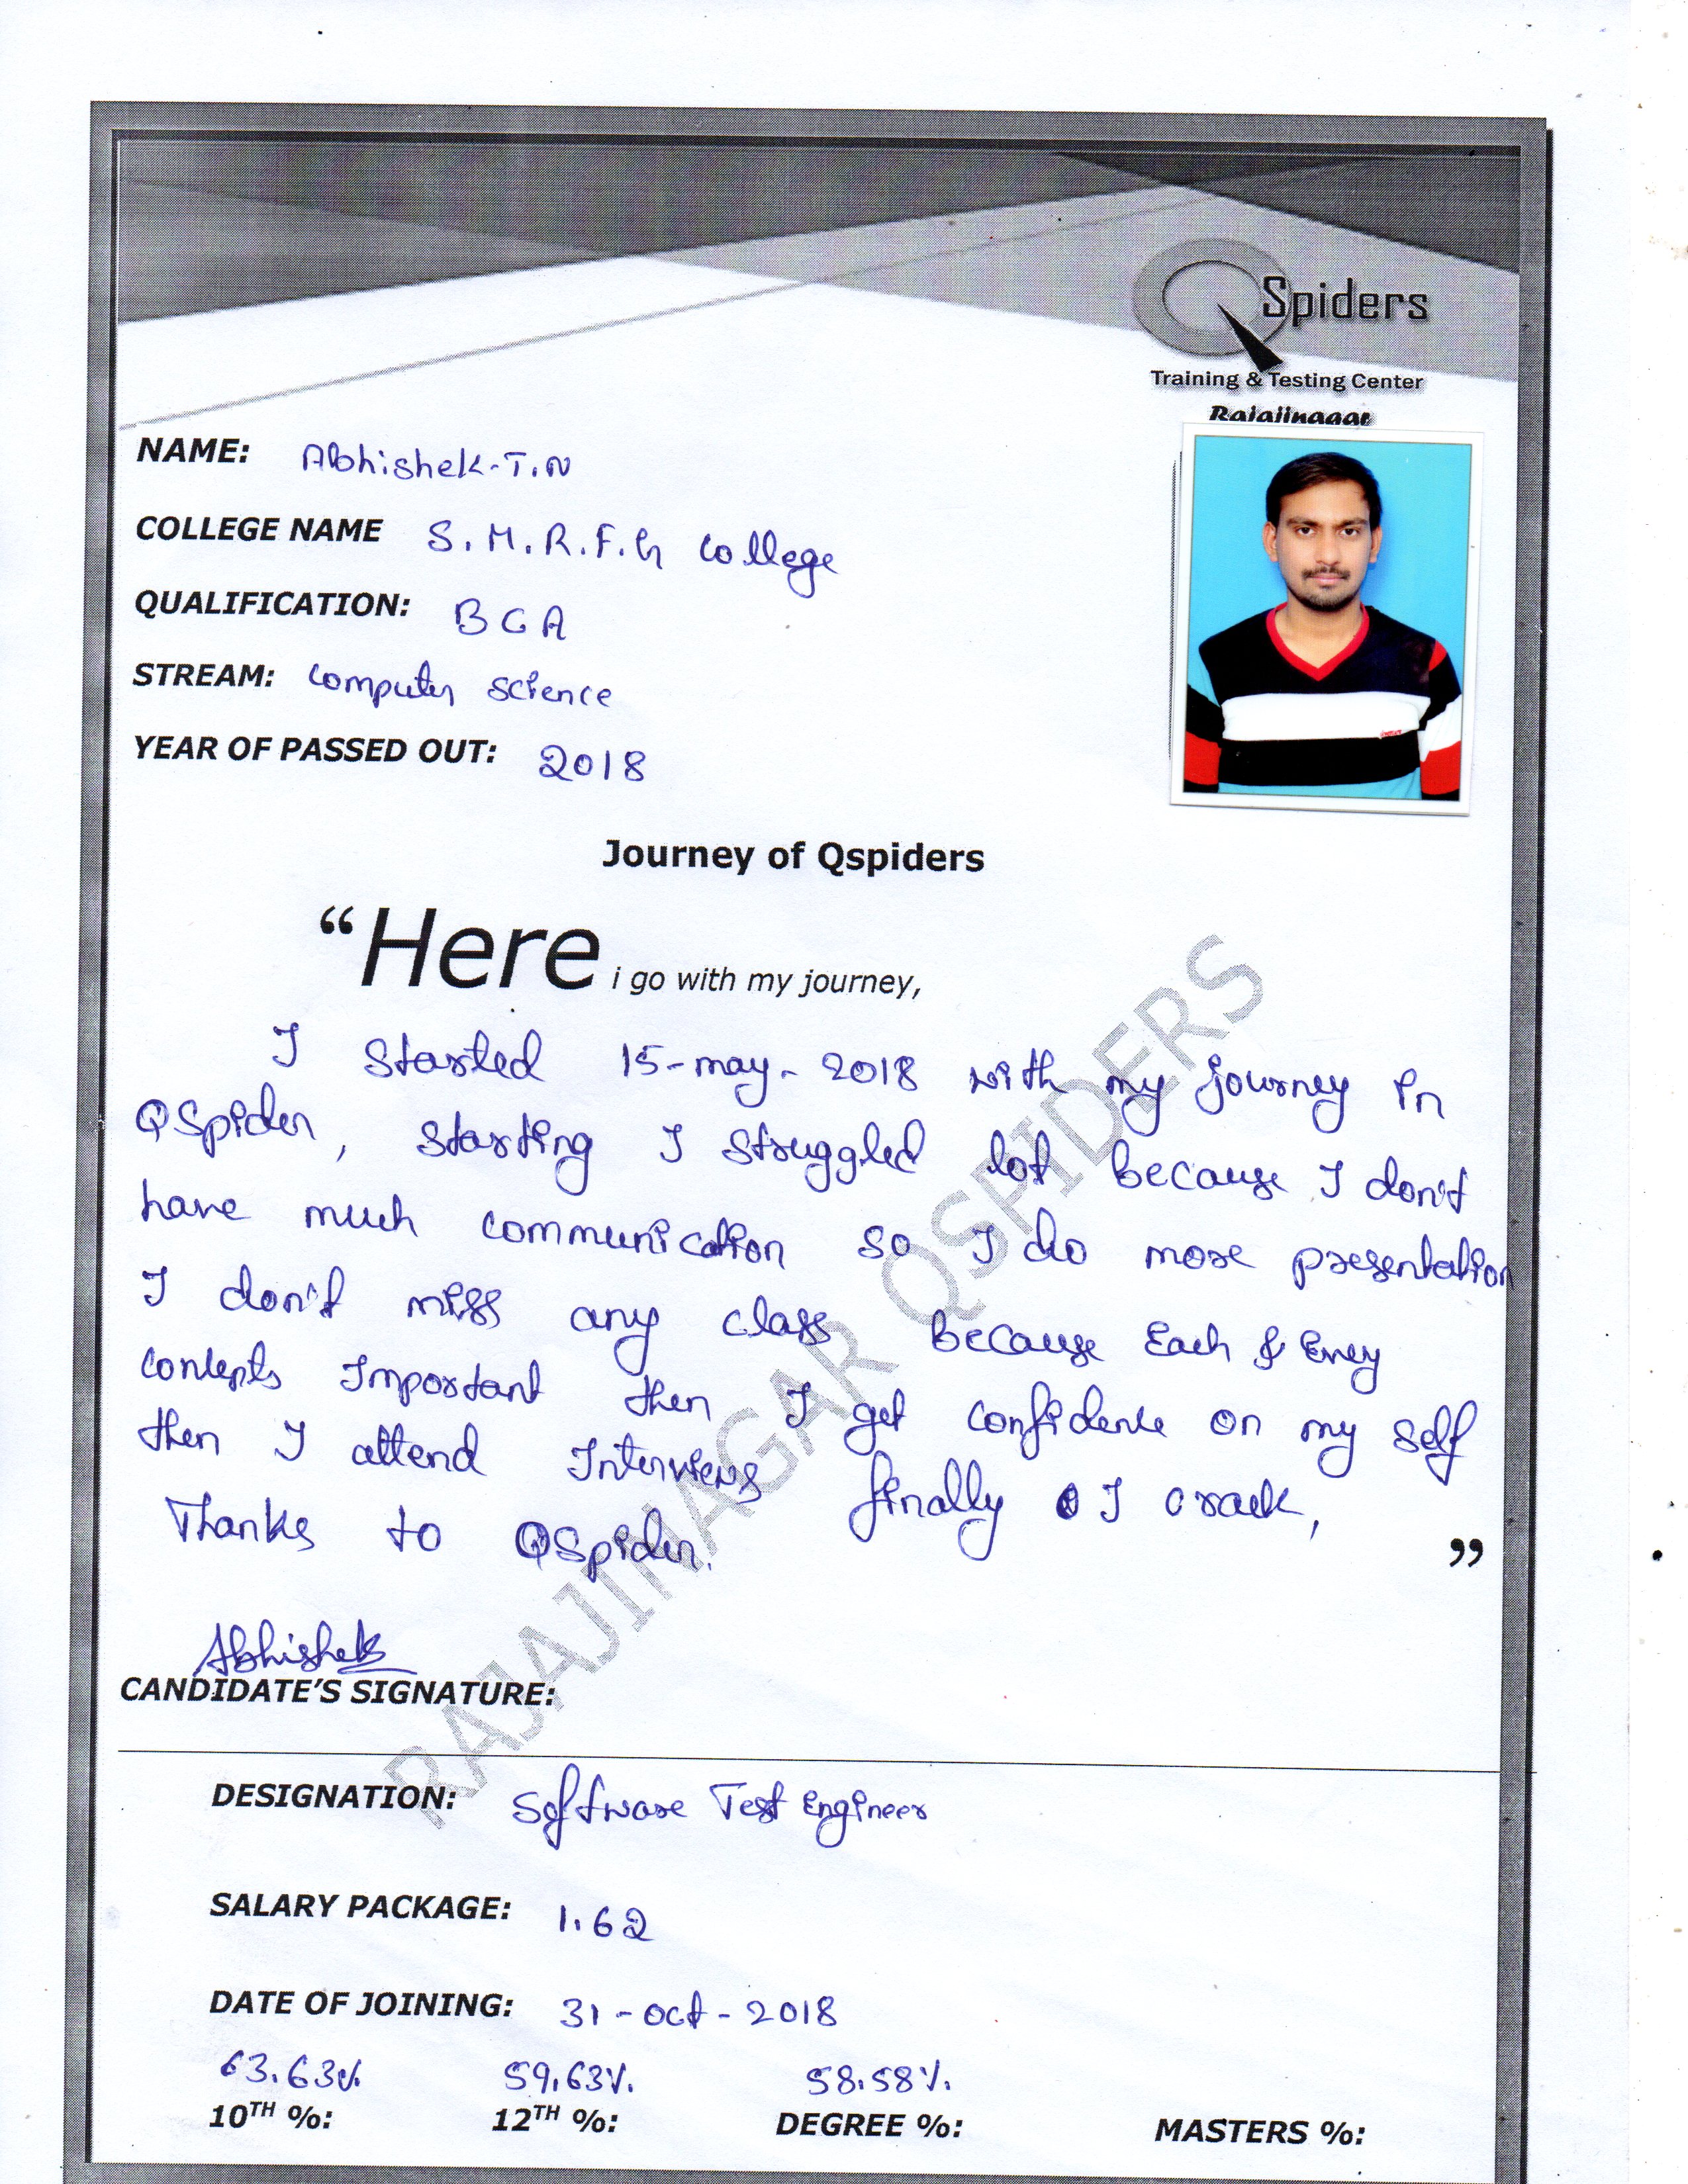 Spiders
Training & Testing Center
Rajajinagar
NAME: Abhishek-T.N
COLLEGE NAME S.M.R.F.G college
QUALIFICATION: BCA
STREAM: Computer science
YEAR OF PASSED OUT: 2018
Journey of Qspiders
“Here i go with my journey,
I started 15-may-2018 with my journey in
QSpider, starting I struggled lot because I don't
have much communication so I do more presentation
I don't miss any class because Each & Evey
concepts Important then I get confidence on my self
then I attend Interviews finally I crack,
Thanks to QSpider.
”
Abhishek
CANDIDATE’S SIGNATURE:
DESIGNATION: Software Test Engineer
SALARY PACKAGE: 1.62
DATE OF JOINING: 31-oct-2018
63.63% 59.63% 58.58%
10TH %: 12TH %: DEGREE %: MASTERS %:
RAJAJINAGAR QSPIDERS